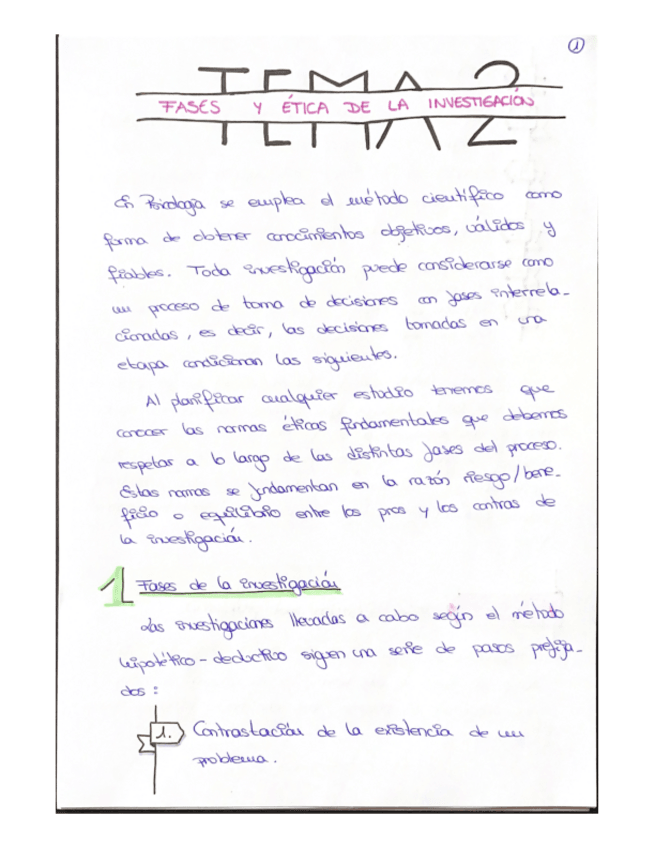 1
TEMA 2
FASES Y ÉTICA DE LA INVESTIGACIÓN
En Psicología se emplea el método científico como
forma de obtener conocimientos objetivos, válidos y
fiables. Toda investigación puede considerarse como
un proceso de toma de decisiones con fases interrela-
cionadas, es decir, las decisiones tomadas en una
etapa condicionan las siguientes.
Al planificar cualquier estudio tenemos que
conocer las normas éticas fundamentales que debemos
respetar a lo largo de las distintas fases del proceso.
Estas normas se fundamentan en la razón riesgo/bene-
ficio o equilibrio entre los pros y los contras de
la investigación.
1 Fases de la investigación
Las investigaciones llevadas a cabo según el método
hipotético-deductivo siguen una serie de pasos prefija-
dos:
1. Contrastación de la existencia de un
problema.